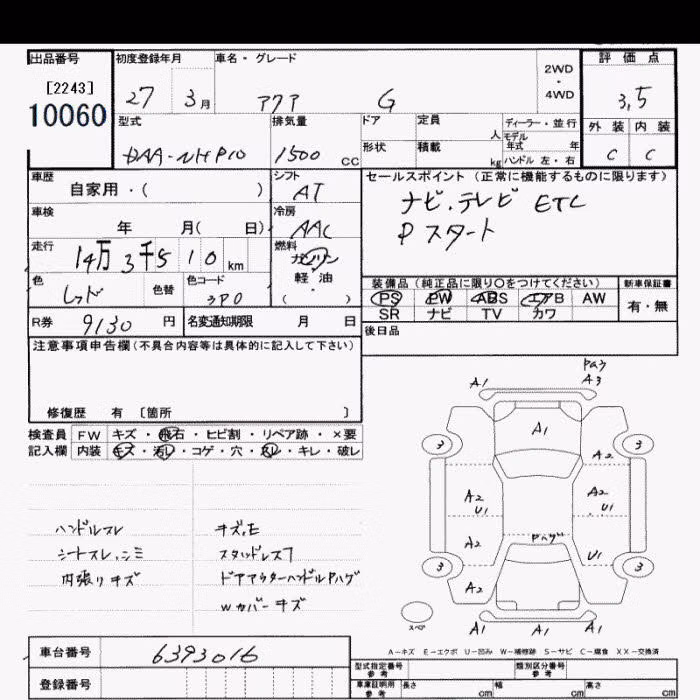 出品番号 初度登録年月 車名・グレード 2WD ・ 4WD 評価点
[2243]
10060
27 3月 アクア G 3,5
型式 排気量 ドア 定員 人 ディーラー・並行 外装 内装
モデル年式 年
DAA-NHP10 1500cc 形状 積載 kg ハンドル 左・右 C C
車歴 シフト セールスポイント(正常に機能するものに限ります)
自家用・( ) AT ナビ.テレビ ETC
車検 冷房 Pスタート
年 月( 日) AAC
走行 燃料
14万3千510km ガソリン
軽・油
( )
色 色替 色コード 装備品(純正品に限り〇をつけてください) 新車保証書
レッド 3P0 PS PW ABS エアB AW 有・無
SR ナビ TV カワ
R券 9130円 名変通知期限 月 日 後日品
注意事項申告欄(不具合内容等は具体的に記入して下さい)
修復歴 有 〔箇所 〕
検査員 FW キズ・飛石・ヒビ割・リペア跡・×要
記入欄 内装 キズ・汚レ・コゲ・穴・スレ・キレ・破レ
ハンドルスレ キズ,E
シートスレ,シミ スタッドレス7
内張りキズ ドアアウターハンドルPハゲ
Wカバーキズ
A1 A3
A1
3 3
A2
A2 U1 A2 U1
A2 Pハゲ U1
3 3
A2
スペア A1 A1 A1
A-キズ E-エクボ U-凹み W-補修跡 S-サビ C-腐食 XX-交換済
車台番号 6393016 型式指定番号 参考 類別区分番号 参考
登録番号 車庫証明用 参考 長さ cm 幅 cm 高さ cm